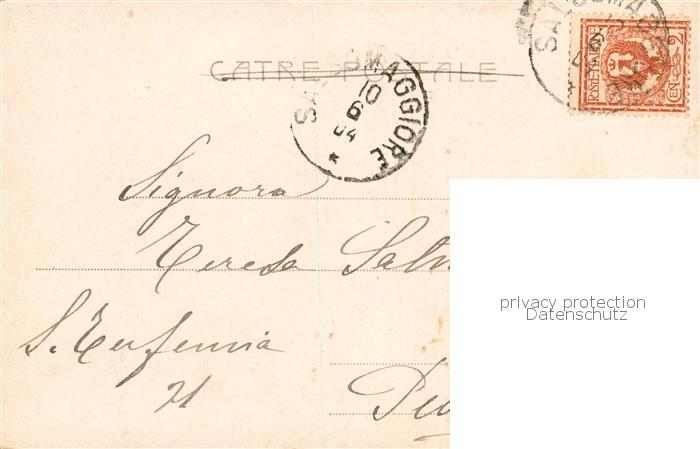 CATRE POSTALE
SALSOMAGGIORE
10
6
04
*
POSTE ITALIANE
CENT. 2
Signora
Teresa Salv
S. Eufemia
21
privacy protection
Datenschutz